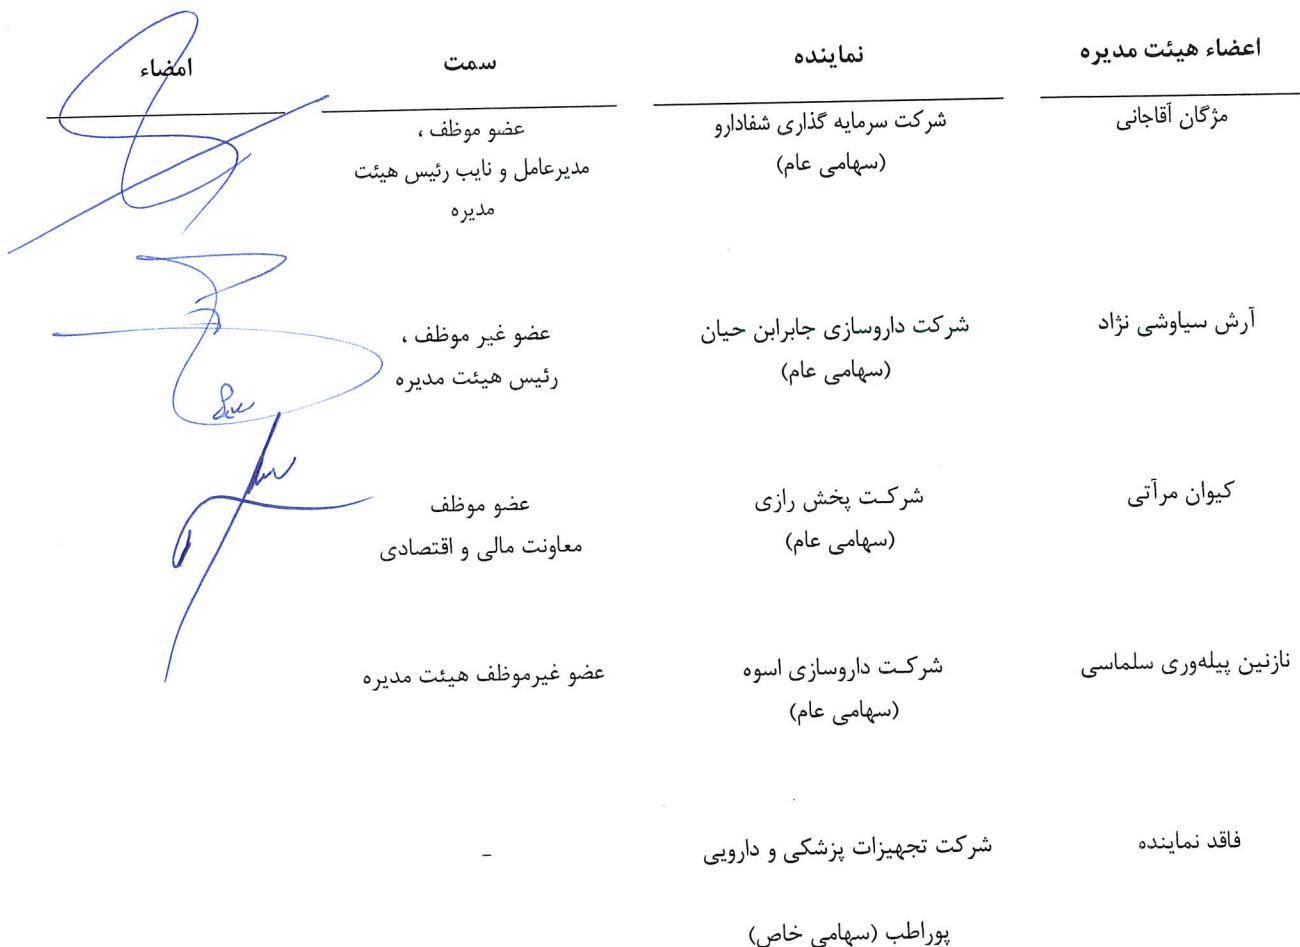 اعضاء هیئت مدیره نماینده سمت امضاء
مژگان آقاجانی شرکت سرمایه گذاری شفادارو عضو موظف ،
(سهامی عام) مدیرعامل و نایب رئیس هیئت
مدیره
آرش سیاوشی نژاد شرکت داروسازی جابرابن حیان عضو غیر موظف ،
(سهامی عام) رئیس هیئت مدیره
کیوان مرآتی شرکت پخش رازی عضو موظف
(سهامی عام) معاونت مالی و اقتصادی
نازنین پیله‌وری سلماسی شرکت داروسازی اسوه عضو غیرموظف هیئت مدیره
(سهامی عام)
فاقد نماینده شرکت تجهیزات پزشکی و دارویی -
پوراطب (سهامی خاص)